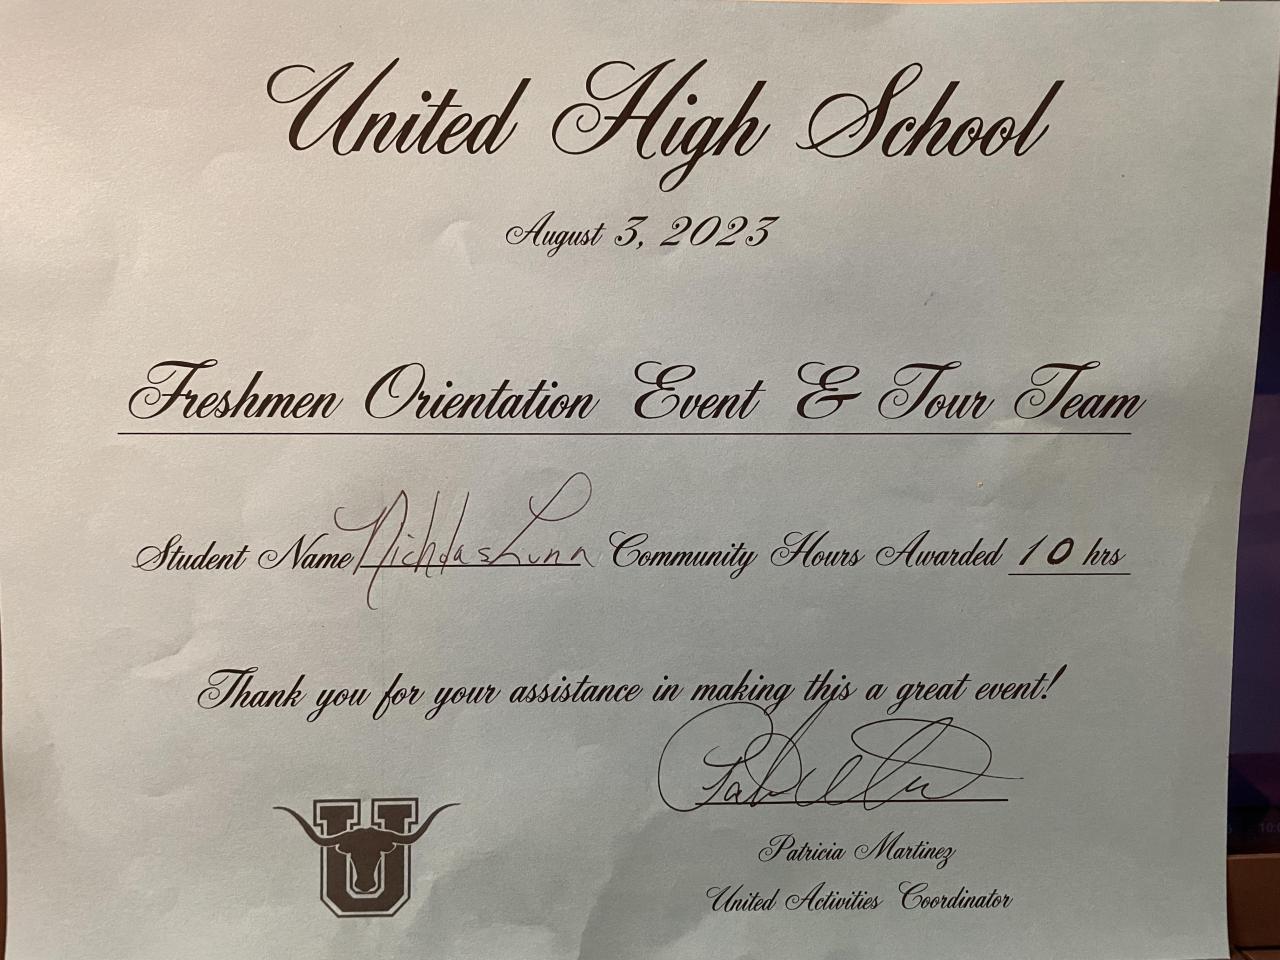 United High School
August 3, 2023
Freshmen Orientation Event & Tour Team
Student Name Nicholas Lunn Community Hours Awarded 10 hrs
Thank you for your assistance in making this a great event!
U
Patricia Martinez
United Activities Coordinator